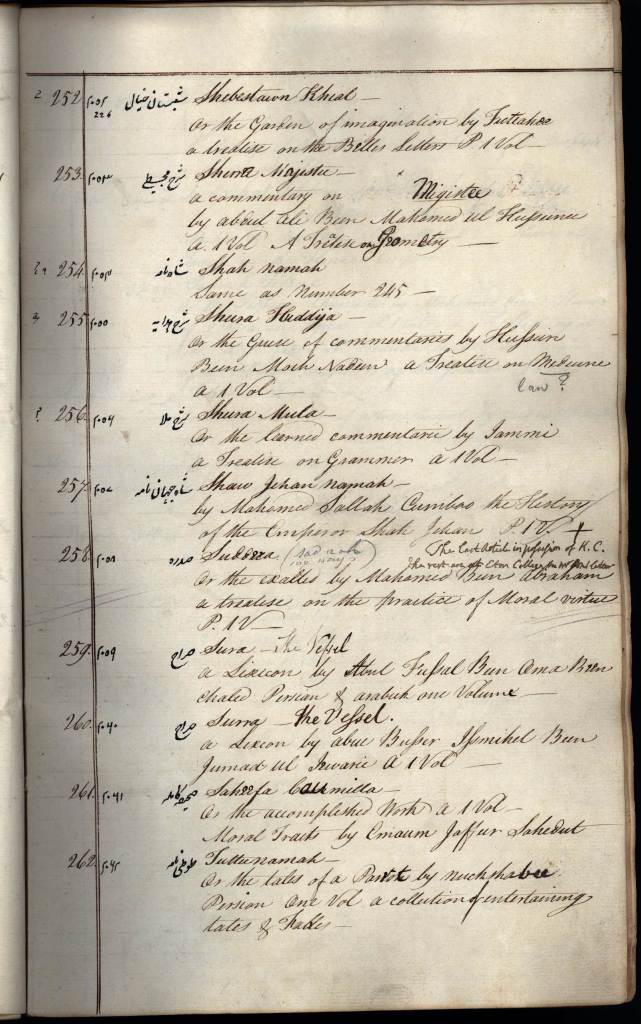 2 252 شبستان خیال Shebestawn Kheal —
226 Or the Garden of imagination by Futtahee
a treatise on the Belles Letters P 1 Vol —
253 شرح مجسطی Shura Majistee —
a commentary on Migistee
by abdul Ali Been Mahomed ul Hussinee
a. 1 Vol A Trétise on Geometry —
254 شاه نامه Shah namah
Same as Number 245 —
255 شرح هدایه Shura Huddija —
Or the Guese of commentaries by Hussein
Been Moeh Nadeen a Treatise on Medecine
a 1 Vol — law ?
? 256 شرح ملا Shura Mula —
Or the learned commentarie by Jammi
a Treatise on Grammer a 1 Vol —
257 شاه جهان نامه Shaw Jehan namah —
by Mahomed Sallah Cumboo the History
of the Emperor Shah Jehan P. 1 V
The last Article in possession of K. C.
258 صدره Suddera
Or the exalted by Mahomed Been Abraham
a treatise on the practice of Moral virtue
P. 1 V —
259 صراح Sura — the Vessel
a Lexicon by Abul Fussal Bun Oma Been
Chaled Persian & arabick one Volume —
260 صراح Surra — the Vessel.
a Lexcon by abue Busser Ismihel Been
Jumad ul Jewarie a 1 Vol —
261 صحیفه کامله Saheefa Caumilla —
Or the accomplished Work a 1 Vol —
Moral Tracts by Emaum Jaffur Sahedut
262 طوطی نامه Tuttunamah —
Or the tales of a Parrot by nuckshabee
Persian One Vol a collection of entertaining
tales & Fables —